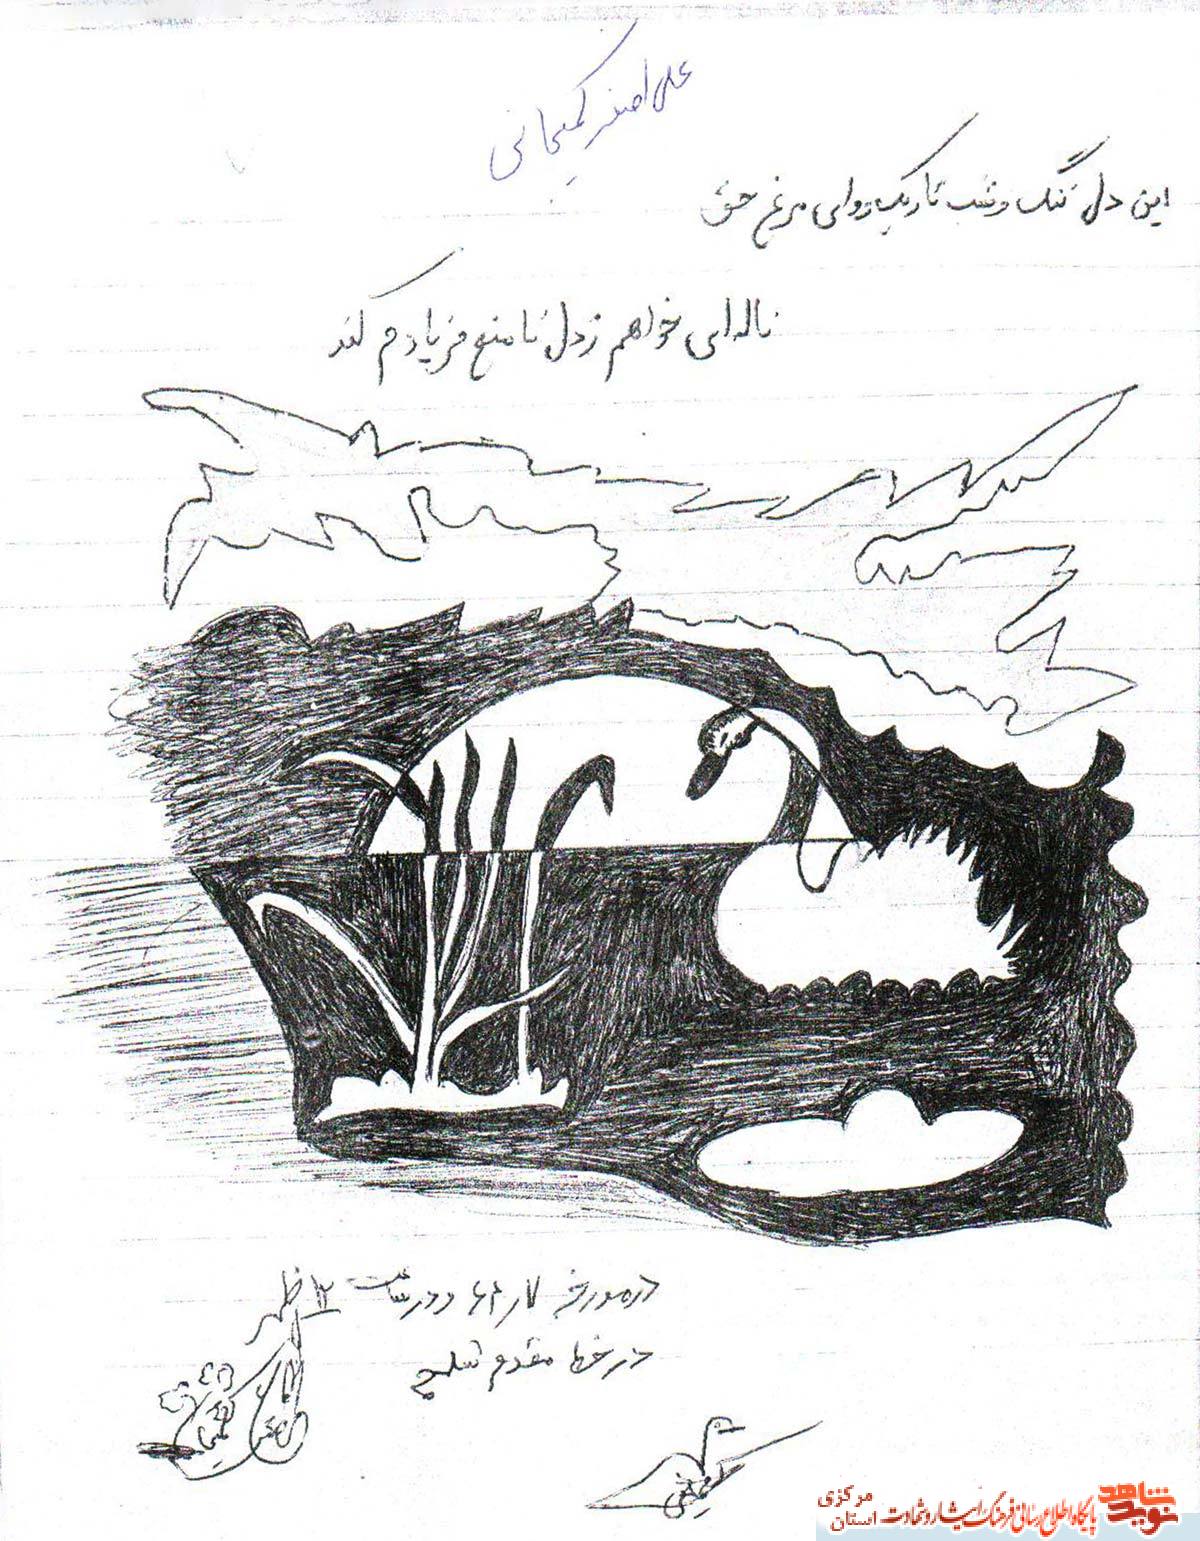 علی اصغر کمیجانی
این دل تنگ و شب تاریک و وای مرغ حق
ناله‌ای خواهم ز دل تا منع فریادم کند
در مورخه و در ساعت ۱۲ ظهر
در خط مقدم شلمچه
کمیجانی
نوید شاهد
پایگاه اطلاع رسانی فرهنگ ایثار و شهادت
استان مرکزی